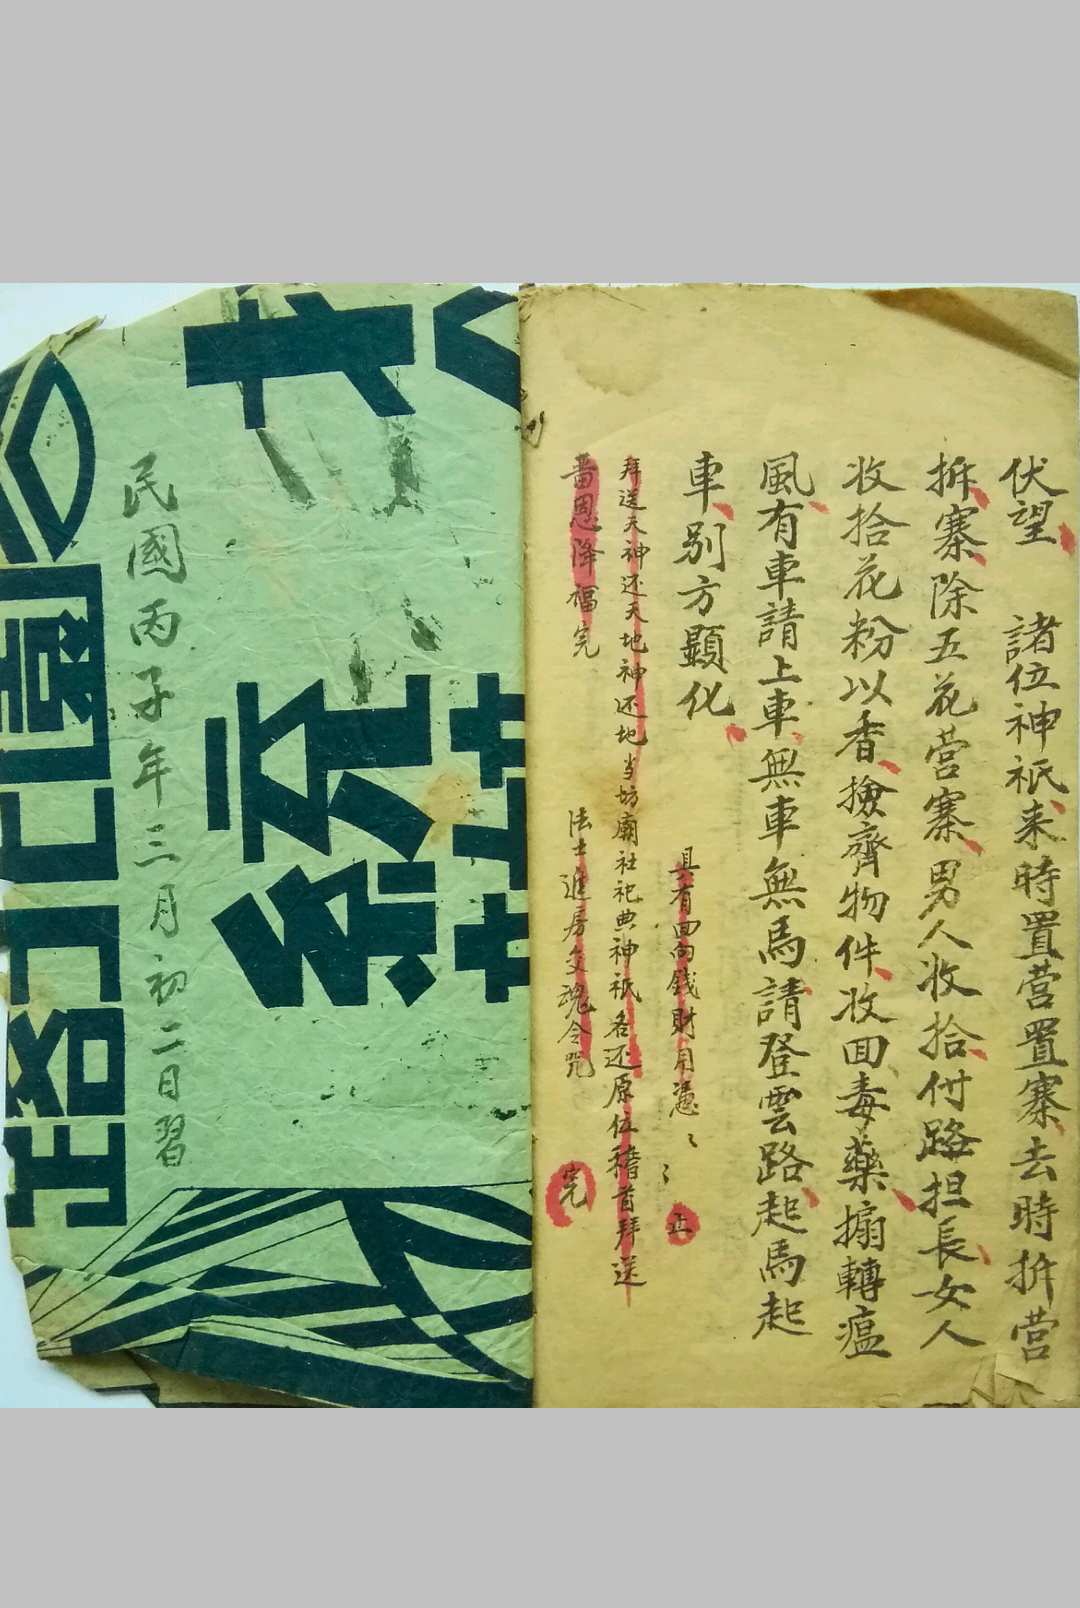 伏望　諸位神祇来時置营置寨去時拆营
拆寨除五花营寨男人收拾付路担長女人
收拾花粉以香撿齊物件收回毒藥搧轉瘟
風有車請上車無車無馬請登雲路起馬起
車別方顯化
具有回向錢財用憑〻〻　正
拜送天神还天地神还地当坊廟社祀典神祇各还原位稽首拜送
畨恩降福完　法士進房交魂令咒　完
民國丙子年三月初二日習